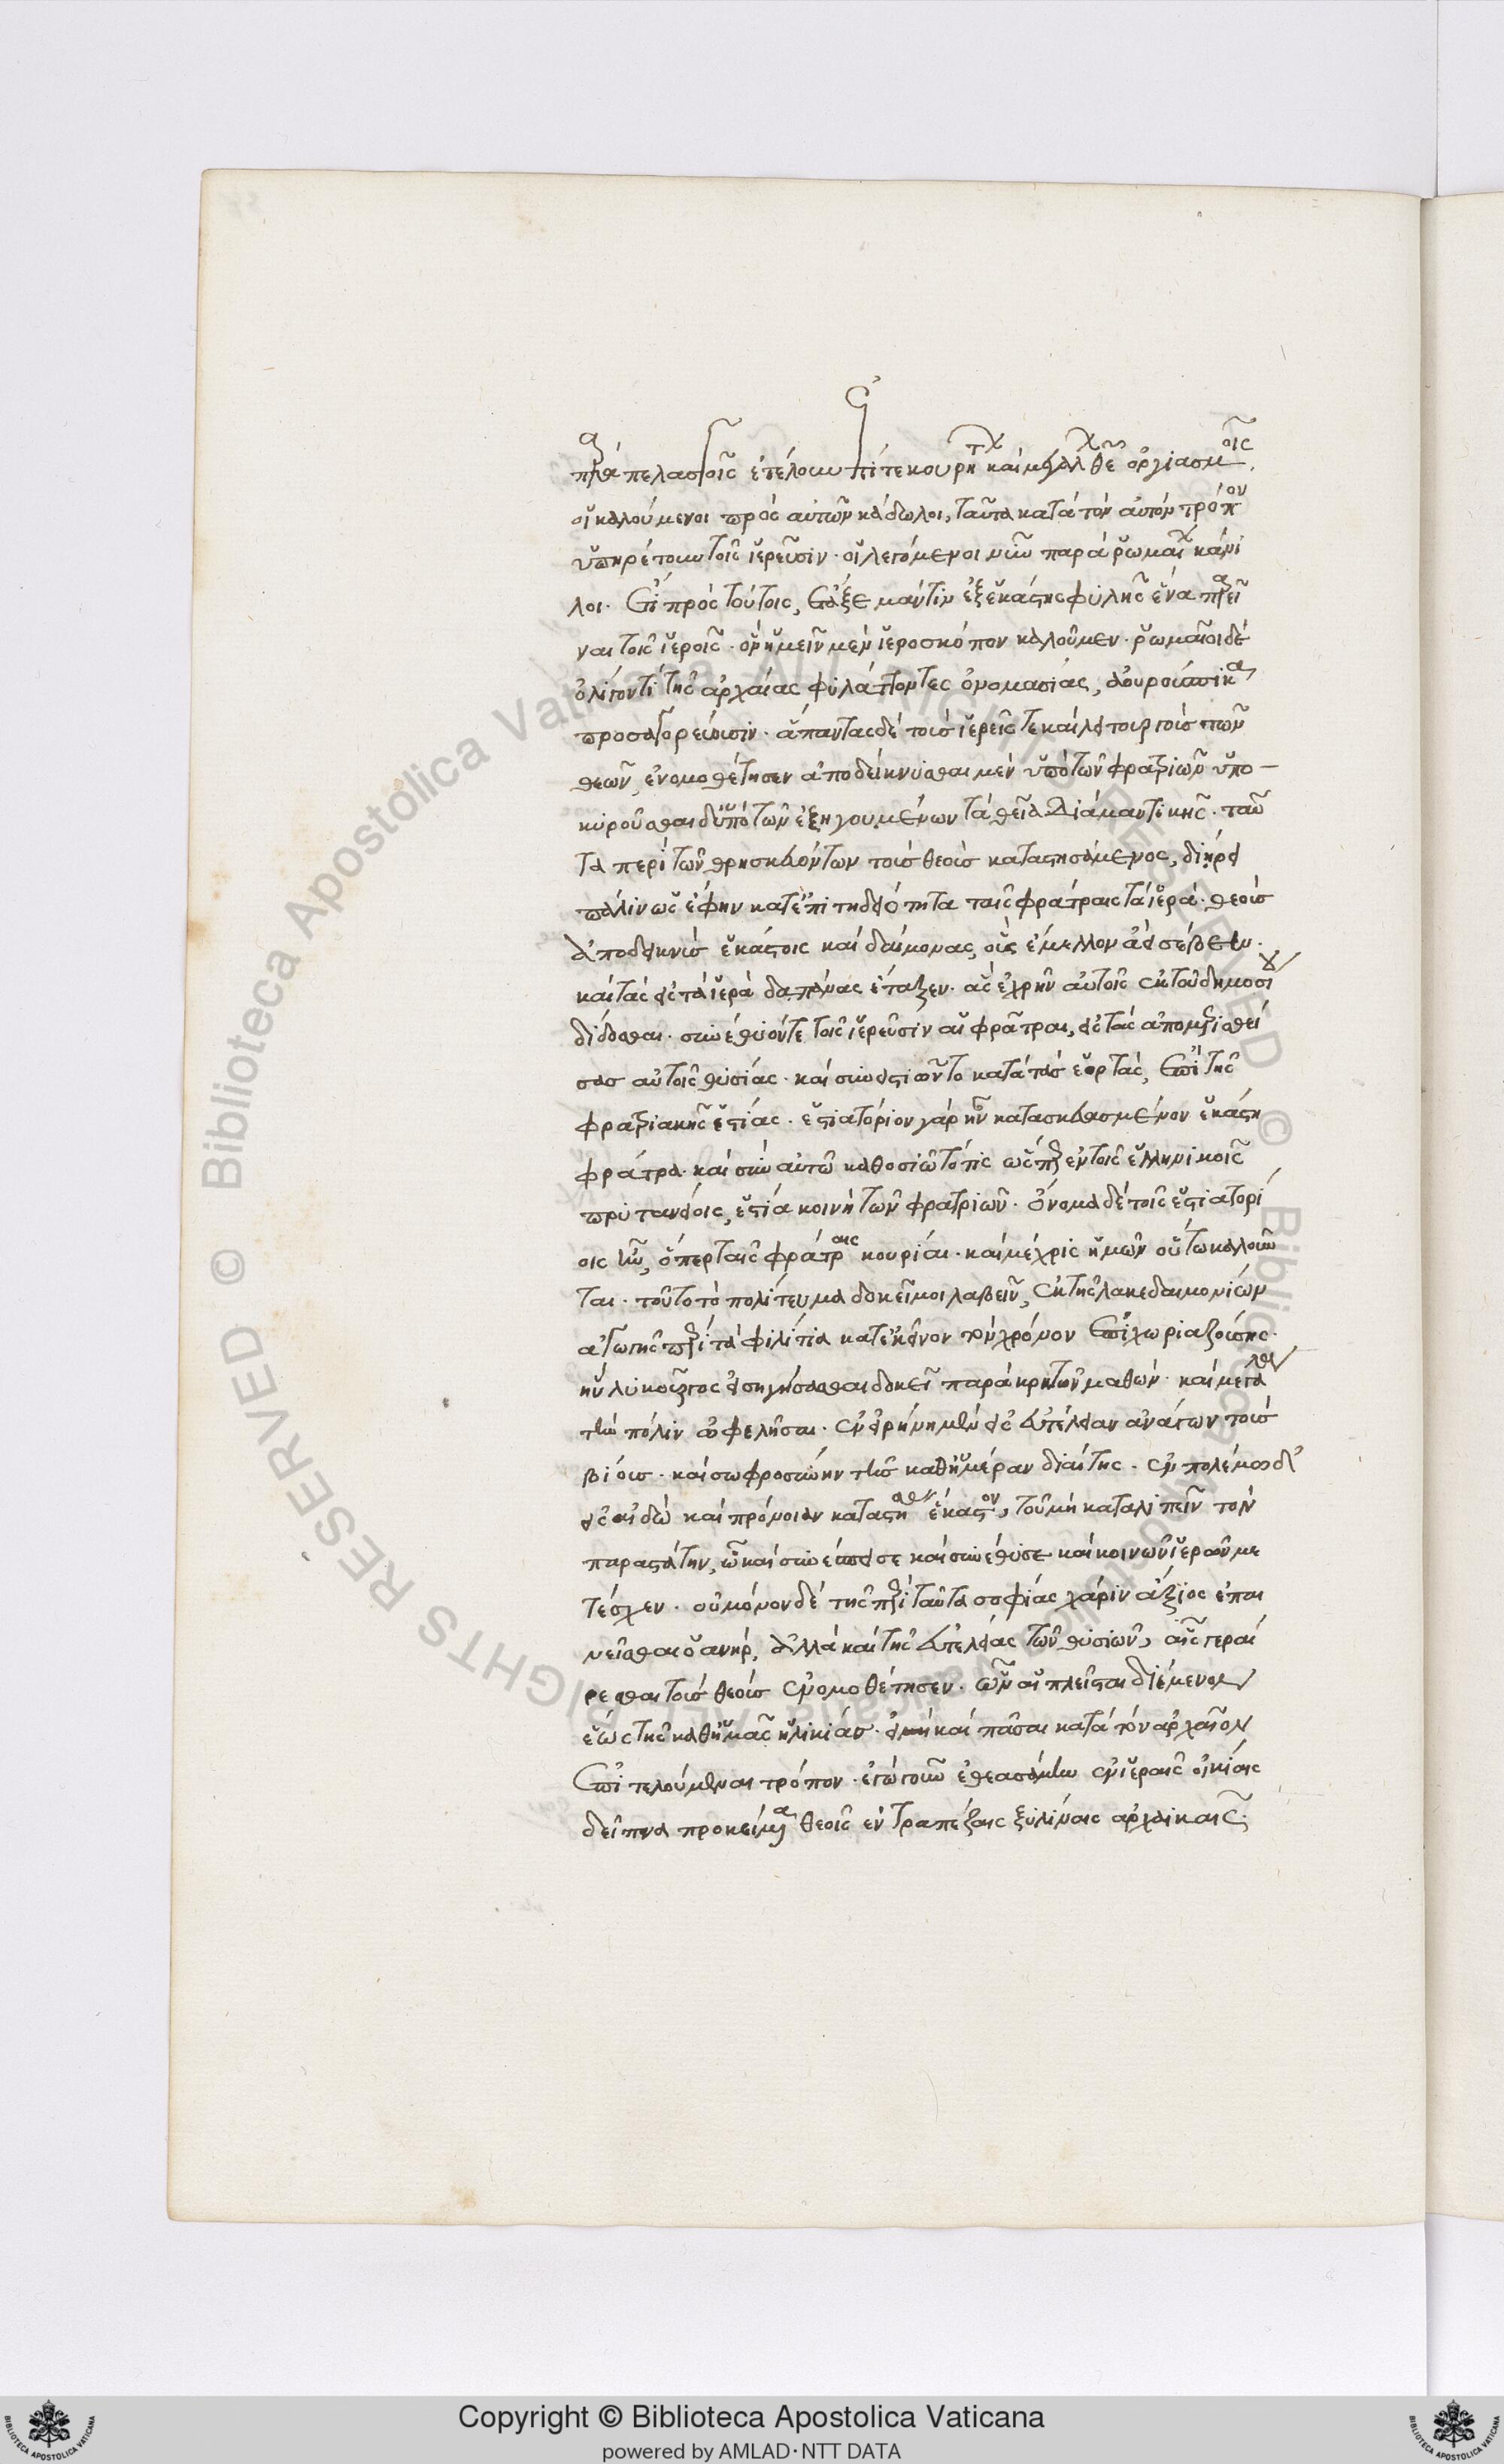 παρὰ πελασγοῖς ἐτέλουν ἐπί τε κουρήτων καὶ μεγάλων θεῶν ὀργιασμοῖς,
οἱ καλούμενοι πρὸς αὐτῶν κάδωλοι, ταῦτα κατὰ τὸν αὐτὸν τρόπον
ὑπηρέτουν τοῖς ἱερεῦσιν· οἱ λεγόμενοι νῦν παρὰ ῥωμαίων κάμι
λοι. ἔτι πρὸς τούτοις, ἔταξε μάντιν ἐξ ἑκάστης φυλῆς ἕνα παρεῖ
ναι τοῖς ἱεροῖς· ὃν ἡμεῖς μὲν ἱεροσκόπον καλοῦμεν· ῥωμαῖοι δὲ
ὀλίγον τι τῆς ἀρχαίας φυλάττοντες ὀνομασίας,
προσαγορεύουσιν· ἅπαντας δὲ τοὺς ἱερεῖς τε καὶ λειτουργοὺς τῶν
θεῶν, ἐνομοθέτησεν ἀποδείκνυσθαι μὲν ὑπὸ τῶν φρατριῶν ὑπο-
κυροῦσθαι δ' ὑπὸ τῶν ἐξηγουμένων τὰ θεῖα διὰ μαντικῆς. ταῦ
τα περὶ τῶν θρησκευόντων τοὺς θεοὺς καταστησάμενος, διῄρει
πάλιν ὡς ἔφην κατ' ἐπιτηδειότητα ταῖς φράτραις τὰ ἱερά· θεοὺς
ἀποδεικνὺς ἑκάστοις καὶ δαίμονας, οὓς ἔμελλον ἀεὶ σέβειν.
καὶ τὰς εἰς τὰ ἱερὰ δαπάνας ἔταξεν. ἃς ἐχρῆν αὐτοῖς ἐκ τοῦ δημοσίου
δίδοσθαι. συνέθυόν τε τοῖς ἱερεῦσιν αἱ φρᾶτραι, εἰς τὰς ἀπομερισθεί
σας αὐτοῖς θυσίας. καὶ συνειστιῶντο κατὰ τὰς ἑορτὰς, ἐπὶ τῆς
φρατριακῆς ἑστίας. ἑστιατόριον γὰρ ἦν κατασκευασμένον ἑκάστῃ
φράτρᾳ. καὶ συν αὐτῶ καθοσίωτό τις ὥσπερ ἐν τοῖς ἑλληνικοῖς
πρυτανείοις, ἑστία κοινὴ τῶν φρατριῶν. ὄνομα δὲ τοῖς ἑστιατορί
οις ἦν, ὅπερ ταῖς φράτραις κουρίαι. καὶ μέχρις ἡμῶν οὕτω καλοῦν
ται. τοῦτο τὸ πολίτευμα δοκεῖ μοι λαβεῖν, ἐκ τῆς λακεδαιμονίων
ἀγωγῆς περὶ τὰ φιλίτια κατ' ἐκεῖνον τὸν χρόνον ἐπιχωριαζούσης.
ἣν λυκοῦργος εἰσηγήσασθαι δοκεῖ παρὰ κρητῶν μαθών. καὶ μεγάλα
τὴν πόλιν ὠφελῆσαι. ἐν εἰρήνῃ μὲν εἰς εὐτέλειαν ἀνάγων τοὺς
βίους. καὶ σωφροσύνην τῆς καθ' ἡμέραν διαίτης. ἐν πολέμῳ δ'
εἰς αἰδῶ καὶ πρόνοιαν καταστήσας ἕκαστον, τοῦ μὴ καταλιπεῖν τὸν
παραστάτην, ᾧ καὶ συνέσπεισε καὶ συνέθυσε καὶ κοινῶν ἱερῶν με
τέσχεν. οὐ μόνον δὲ τῆς περὶ ταῦτα σοφίας χάριν ἄξιος ἐπαι
νεῖσθαι ὁ ἀνήρ, ἀλλὰ καὶ τῆς εὐτελείας τῶν θυσιῶν, αἷς γεραί
ρεσθαι τοὺς θεοὺς ἐνομοθέτησεν. ὧν αἱ πλεῖσται διέμενον
ἕως τῆς καθ' ἡμᾶς ἡλικίας. εἰ μὴ καὶ πᾶσαι κατὰ τὸν ἀρχαῖον
ἐπιτελούμεναι τρόπον. ἐγὼ γοῦν ἐθεασάμην ἐν ἱεραῖς οἰκίαις
δεῖπνα προκείμενα θεοῖς ἐν τραπέζαις ξυλίναις ἀρχαϊκαῖς.
Copyright © Biblioteca Apostolica Vaticana
powered by AMLAD·NTT DATA